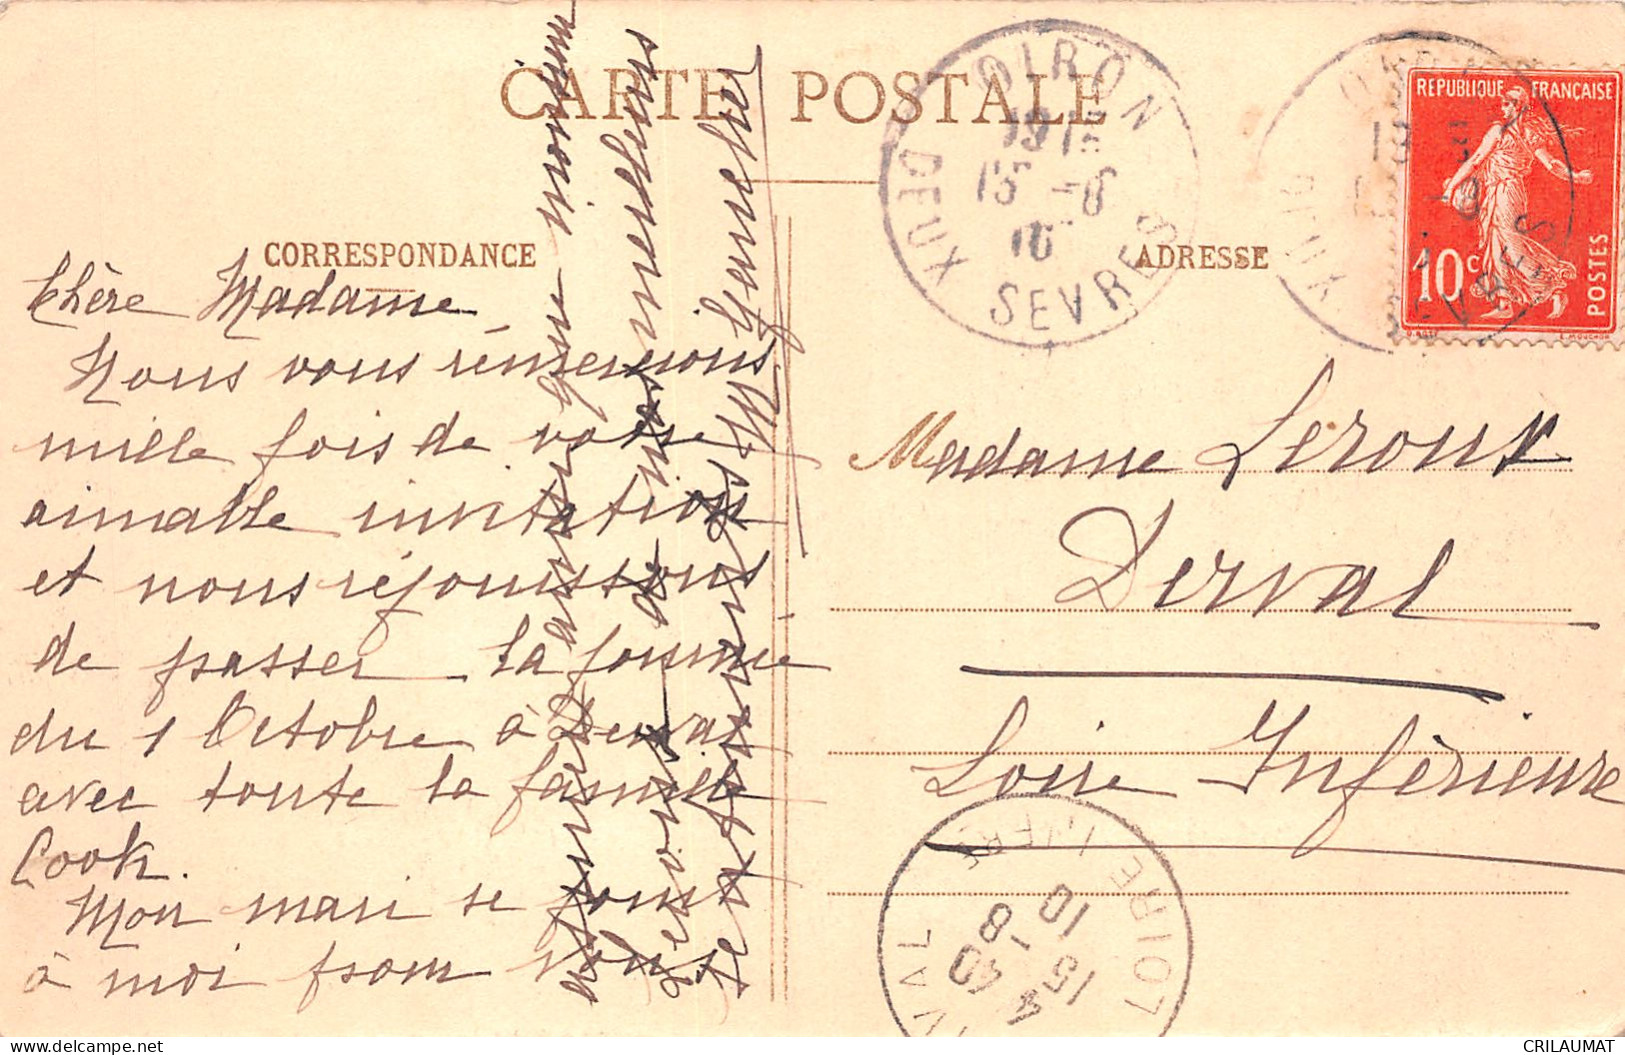 CARTE POSTALE
CORRESPONDANCE
ADRESSE
Chère Madame
Nous vous remercions
mille fois de votre
aimable invitation
et nous réjouissons
de passer la journée
du 1 Octobre à Derval
avec toute la famille
Cook.
Mon mari se joint
à moi pour vous
ainsi que monsieur
nos meilleurs
sentiments
Madame Leroux
Derval
Loire Inférieure
OIRON
15 -8
10
DEUX SEVRES
REPUBLIQUE FRANÇAISE
10c
POSTES
E. MOUCHON
SEVRES
VAL
LOIRE INFRE
15
10
8
delcampe.net
CRILAUMAT